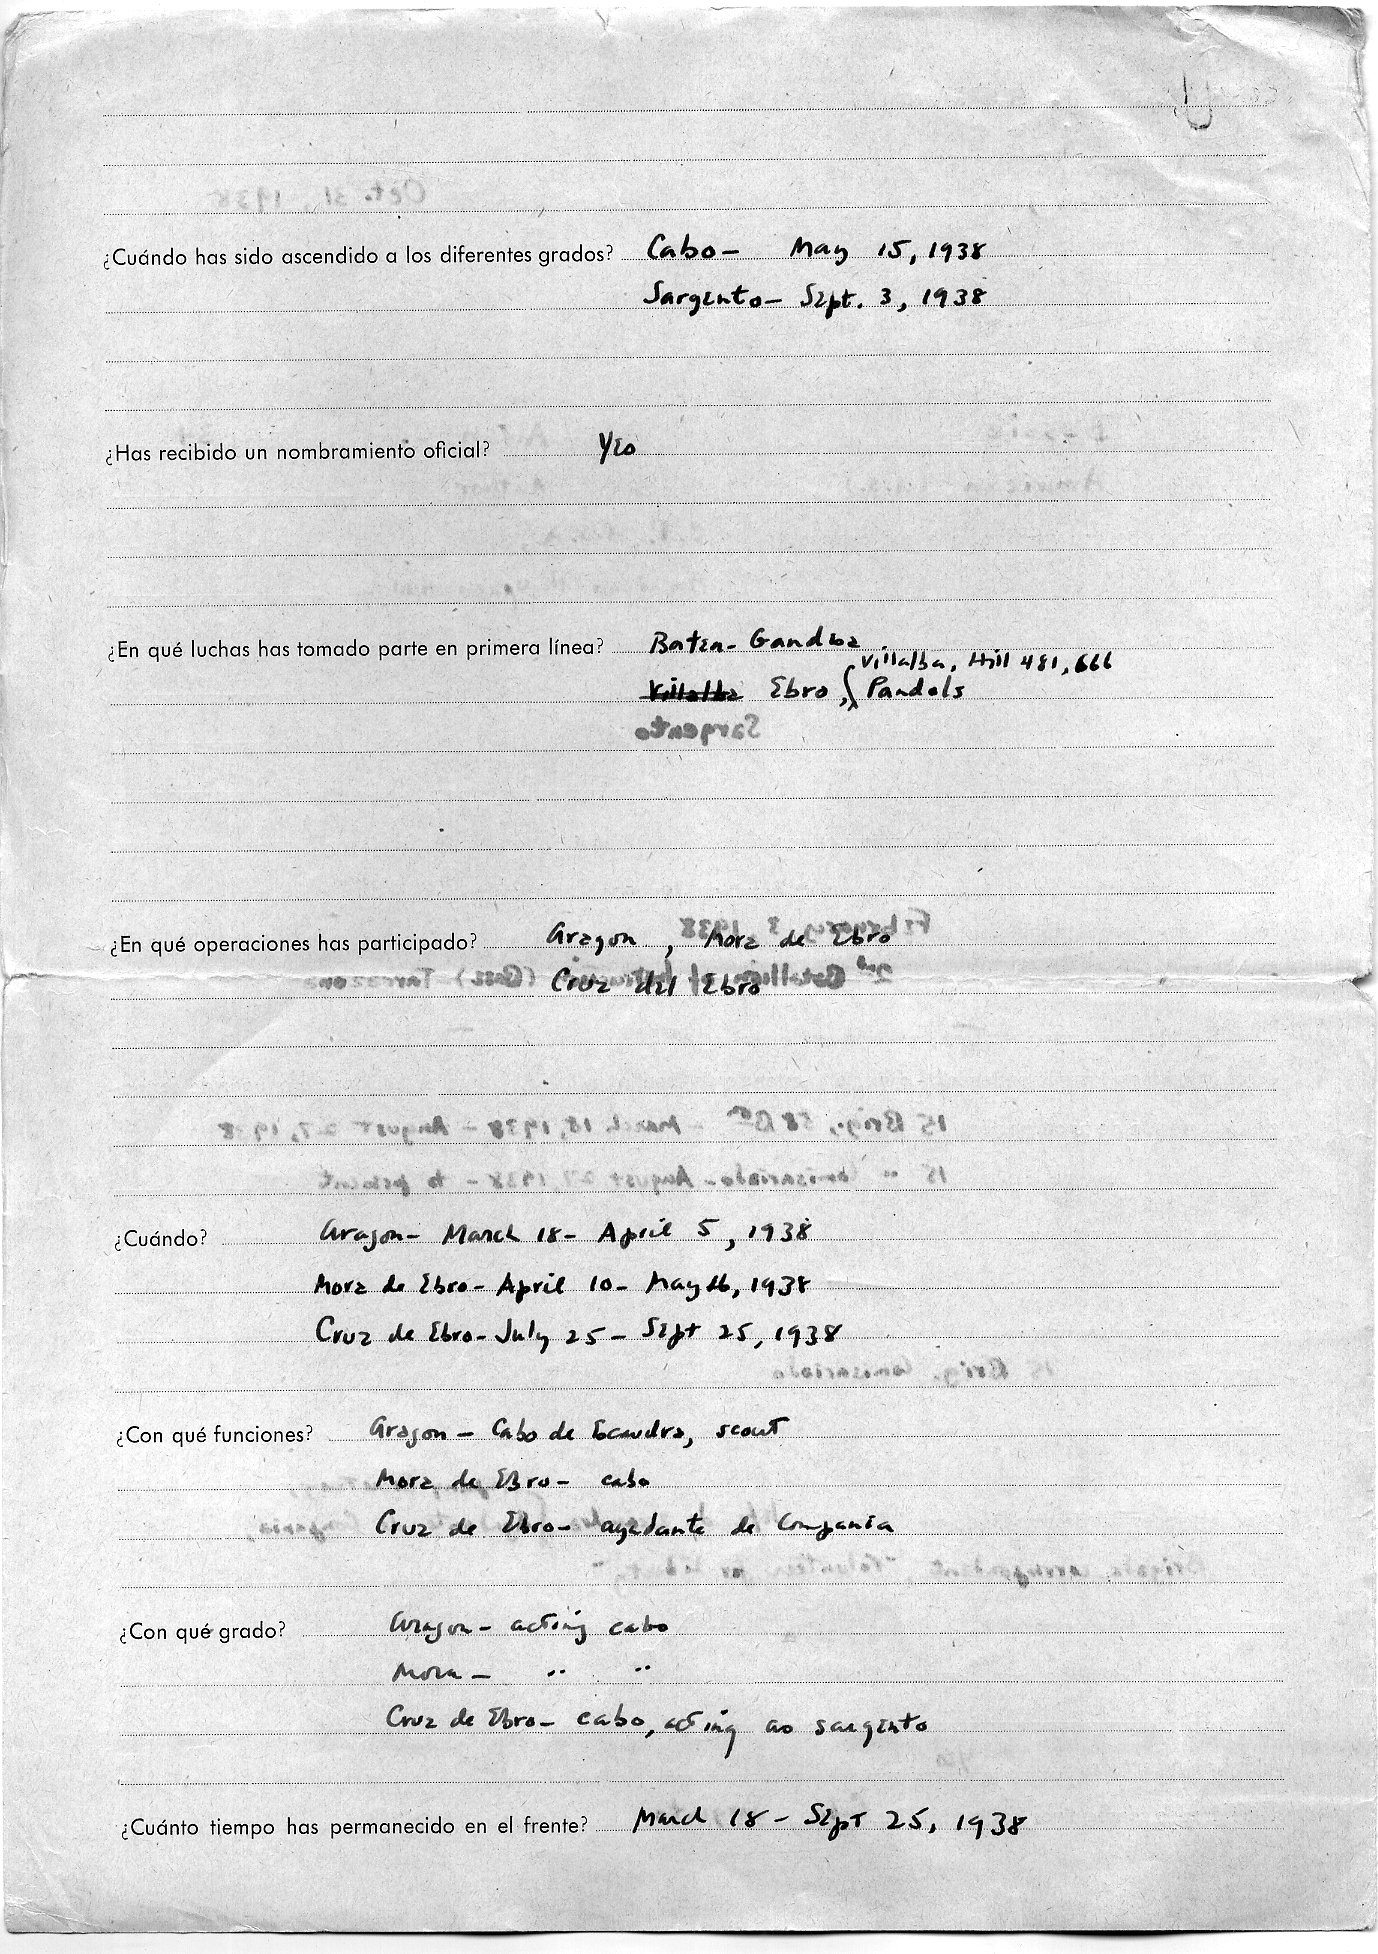 ¿Cuándo has sido ascendido a los diferentes grados? Cabo - May 15, 1938
Sargento - Sept. 3, 1938
¿Has recibido un nombramiento oficial? Yes
¿En qué luchas has tomado parte en primera línea? Batea - Gandesa
Villalba, Hill 481, 666
Villalba Ebro, Pandols
¿En qué operaciones has participado? Aragon, Mora de Ebro
Cruz del Ebro
¿Cuándo? Aragon - March 18 - April 5, 1938
Mora de Ebro - April 10 - May 16, 1938
Cruz de Ebro - July 25 - Sept 25, 1938
¿Con qué funciones? Aragon - Cabo de , scout
Mora de Ebro - cabo
Cruz de Ebro - ayudante de Compania
¿Con qué grado? Aragon - acting cabo
Mora - " "
Cruz de Ebro - cabo, acting as sargento
¿Cuánto tiempo has permanecido en el frente? March 18 - Sept 25, 1938